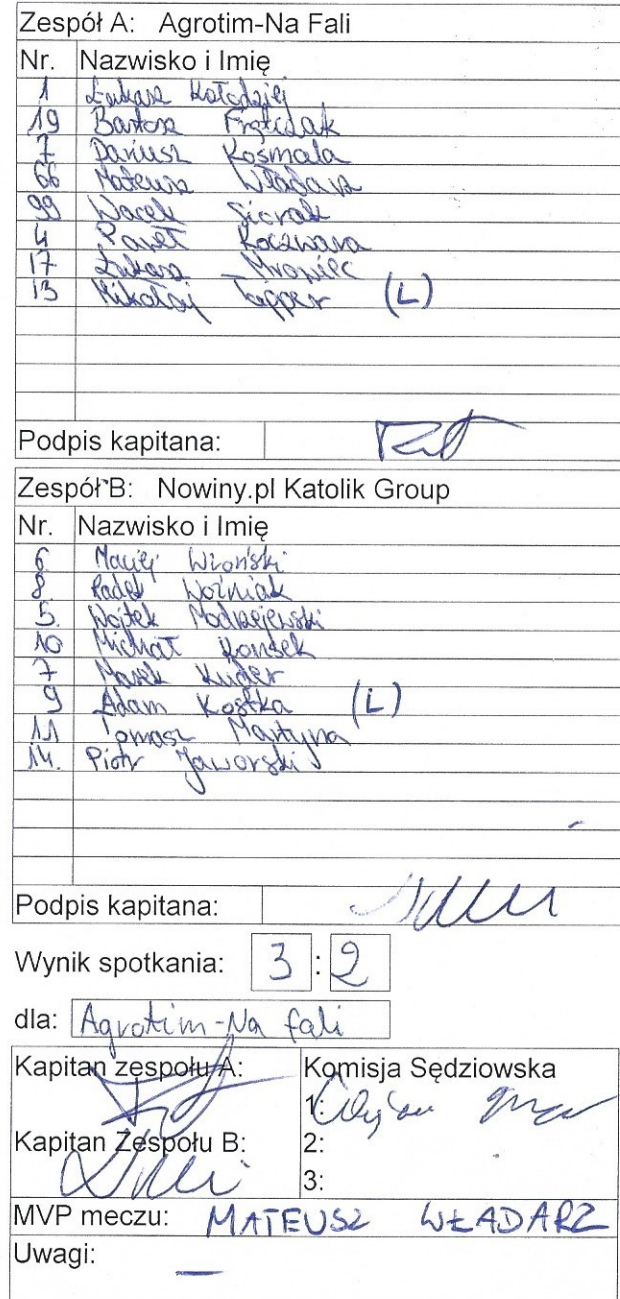 Zespół A: Agrotim-Na Fali
Nr. Nazwisko i Imię
1 Łukasz Kołodziej
19 Bartosz Frątczak
7 Dariusz Kosmala
66 Mateusz Władarz
99 Wacek Siorak
4 Paweł Koczwara
17 Łukasz Mrowiec
13 Mikołaj Tapper (L)
Podpis kapitana:
Zespół B: Nowiny.pl Katolik Group
Nr. Nazwisko i Imię
6 Maciej Wroński
8 Radek Woźniak
5. Wojtek Modrzejewski
10 Michał Konsek
7 Marek Kuder
9 Adam Kostka (L)
11 Tomasz Martyna
14. Piotr Jaworski
Podpis kapitana:
Wynik spotkania: 3 : 2
dla: Agrotim-Na fali
Kapitan zespołu A: Komisja Sędziowska
1:
Kapitan Zespołu B: 2:
3:
MVP meczu: MATEUSZ WŁADARZ
Uwagi: —